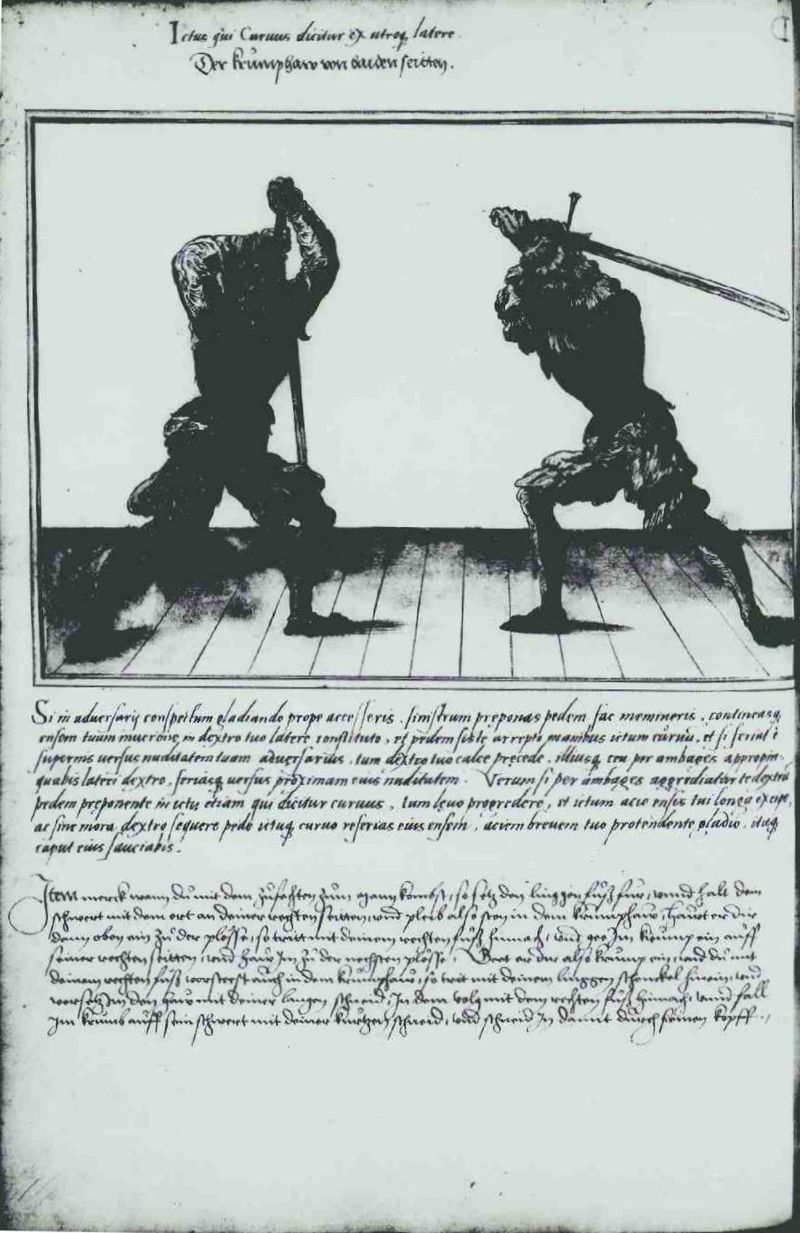 Ictus qui Curuus dicitur ex utroq; latere
Der krumphaw von baiden seitten.
Si in aduersarij conspectum gladiando prope accesseris, sinistrum preponas pedem, fac memineris, contineasq;
ensem tuum mucrone in dextro tuo latere constituto, et pedem siste arreptis manibus ictum curuum, et si feriat è
supernis uersus nuditatem tuam aduersarius, tum dextro tuo calce precede, illiusq; ceu per ambages appropin-
quabis lateri dextro, feriasq; uersus proximam eius nuditatem. Verum si per ambages aggrediatur te dextrum
pedem preponente in ictu etiam qui dicitur curuus, tum leuo progredere, et ictum acie ensis tui longa excipe,
ac sine mora dextro sequere pede ictuq; curuo referias eius ensem, aciem breuem tuo protendente gladio, itaq;
caput eius sauciabis.
Item merck wann du mit dem zufechten zum mann kombst, so setz den linggen fuß fur, vnnd halt dem
schwert mit dem ort an deiner rechten seitten, vnd pleib also sten in dem krumphaw, hawt er dir
dann oben ein zu der plösse, so tritt mit deinem rechten fuß hinnach, vnd gee Im krump ein auff
seiner rechten seitten, vnd haw Im zu der nechsten plösse, Geet er dir also krump ein, vnd du mit
deinem rechten fuß vorsteest auch in dem krumphaw, so trit mit deinem linggen schenckel hinein, vnd
versetz Im den haw mit deiner langen schneid, In dem volg mit dem rechten fuß hinnach, vnnd fall
Im krumb auff sein schwert mit deiner kurtzen schneid, vnd schneid In damit durch seinen kopff.